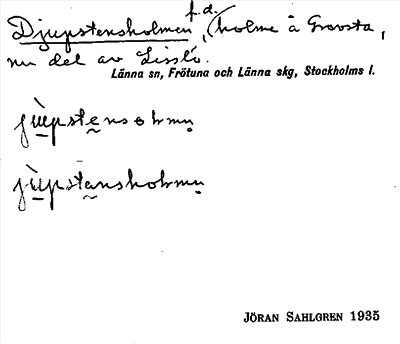 Djupstensholmen, f.d. (holme å Gravsta,
nu del av Lisslö.
Länna sn, Frötuna och Länna skg, Stockholms l.
jùpstensołmn
jùpstansholmn
JÖRAN SAHLGREN 1935